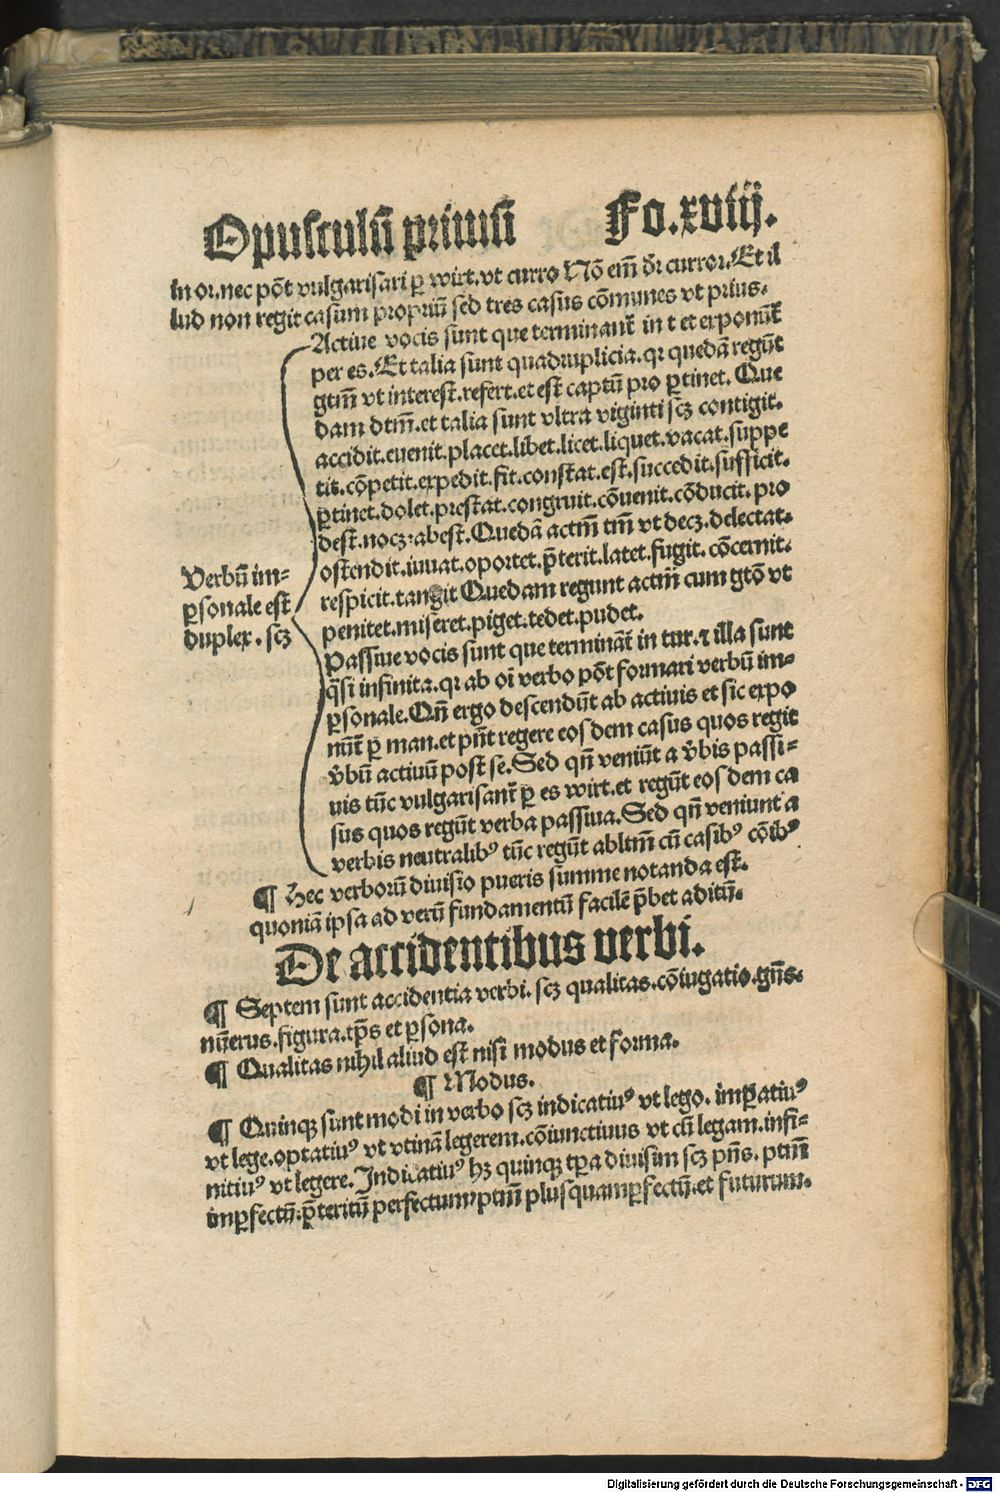 Opusculū primū Fo.xviij.
in or.nec pōt vulgarisari ꝑ wirt.vt curro Nō em̄ dr̄ curror.Et il
lud non regit casum propriū sed tres casus cōmunes vt prius.
Actiue vocis sunt que terminant̄ in t et exponūt̄
per es.Et talia sunt quadruplicia.qꝛ quedā regūt
gtm̄ vt interest̄.refert.et est̄ captū pro ꝑtinet. Que
dam dtm̄.et talia sunt vltra viginti scꝫ contigit.
accidit.euenit.placet.libet.licet.liquet.vacat.suppe
tit.cōpetit.expedit.fit.constat.est̄.succedit.sufficit.
ꝑtinet.dolet.prestat.congruit.cōuenit.cōducit. pro
dest̄.nocꝫ.abest̄.Quedā actm̄ tm̄ vt decꝫ.delectat.
ostendit.iuuat.oportet.p̄terit.latet.fugit. cōcernit.
respicit.tangit Quedam regunt actm̄ cum gtō vt
penitet.miseret.piget.tedet.pudet.
Verbū im=
ꝑsonale est̄
duplex. scꝫ
Passiue vocis sunt que termināt̄ in tur.⁊ illa sunt
q̄si infinita.qꝛ ab oī verbo pōt formari verbū im=
ꝑsonale.Qn̄ ergo descendūt ab actiuis et sic expo
nūt̄ ꝑ man.et pn̄t regere eosdem casus quos regit
v̄bū actiuū post se.Sed qn̄ veniūt a v̄bis passi=
uis tūc vulgarisant̄ ꝑ es wirt.et regūt eosdem ca
sus quos regūt verba passiua.Sed qn̄ veniunt a
verbis neutralibꝰ tūc regūt abltm̄ cū casibꝰ cōibꝰ
¶ Hec verborū diuisio pueris summe notanda est̄.
quoniā ipsa ad verū fundamentū facilē p̄bet aditū.
De accidentibus verbi.
¶ Septem sunt accidentia verbi. scꝫ qualitas.cōiugatio.gn̄s.
nūerus.figura.tp̄s et ꝑsona.
¶ Qualitas nihil aliud est̄ nisi modus et forma.
¶ Modus.
¶ Quinqꝫ sunt modi in verbo scꝫ indicatiuꝰ vt lego. imꝑatiuꝰ
vt lege.optatiuꝰ vt vtinā legerem.cōiunctiuus vt cū legam.infi=
nitiuꝰ vt legere.Indicatiuꝰ hꝫ quinqꝫ tꝑa diuisim scꝫ pn̄s. ptm̄
imꝑfectū.p̄teritū perfectum/ptm̄ plusquamꝑfectū.et futurum.
Digitalisierung gefördert durch die Deutsche Forschungsgemeinschaft - DFG